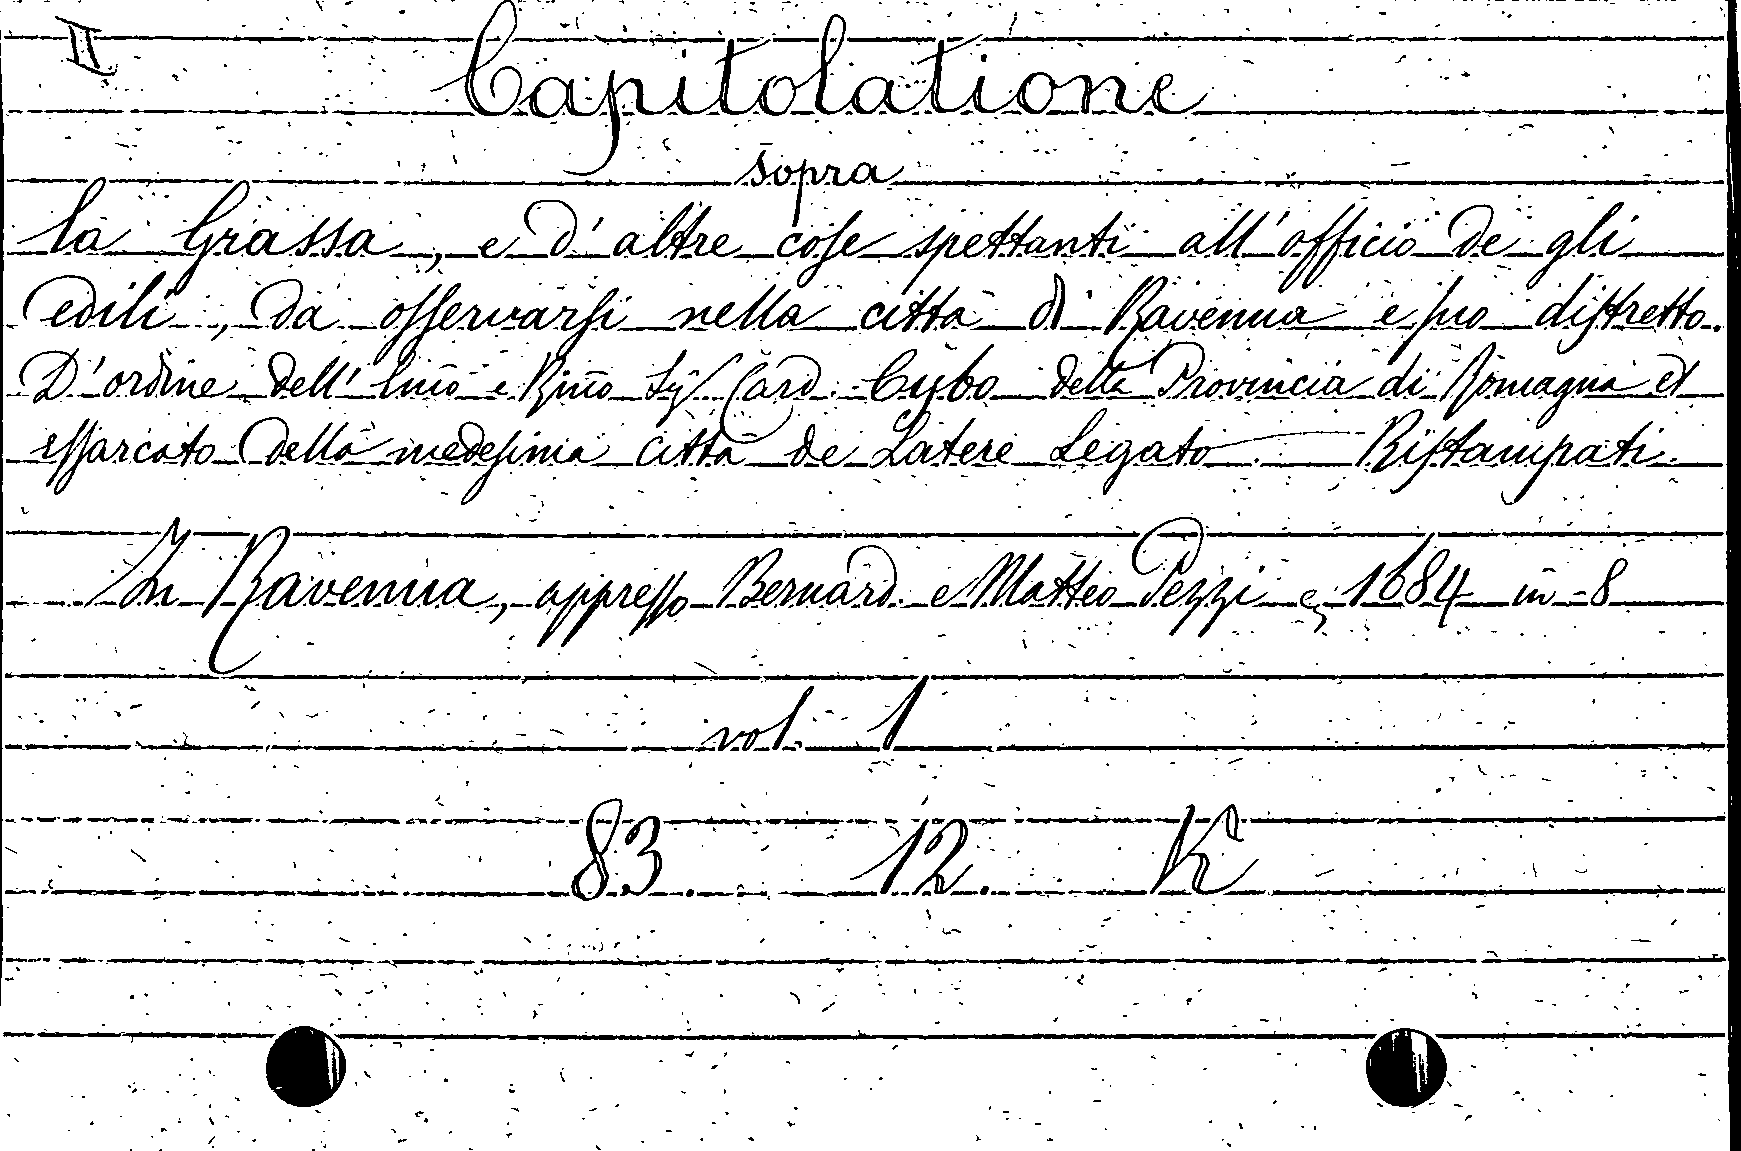 II
Capitolatione
sopra
la Grassa, e d'altre cose spettanti all'officio de gli
edili, da osservarsi nella città di Ravenna e suo distretto.
D'ordine dell' Emo e Rmo Sig Card. Cybo della Provincia di Romagna et
essarcato della medesima città de Latere Legato — Ristampati.
In Ravenna, appresso Bernard. e Matteo Pezzi 1684 in-8
vol. 1
83. 12. K